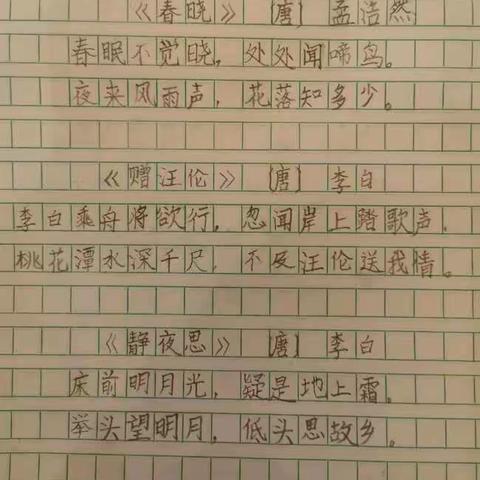 《春晓》 [唐] 孟浩然
春眠不觉晓，处处闻啼鸟。
夜来风雨声，花落知多少。
《赠汪伦》 [唐] 李白
李白乘舟将欲行，忽闻岸上踏歌声，
桃花潭水深千尺，不及汪伦送我情。
《静夜思》 [唐] 李白
床前明月光，疑是地上霜。
举头望明月，低头思故乡。